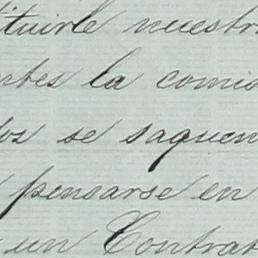 tituirle nuestr
ntes la comis
los se saquen
pensarse en
un Contrat